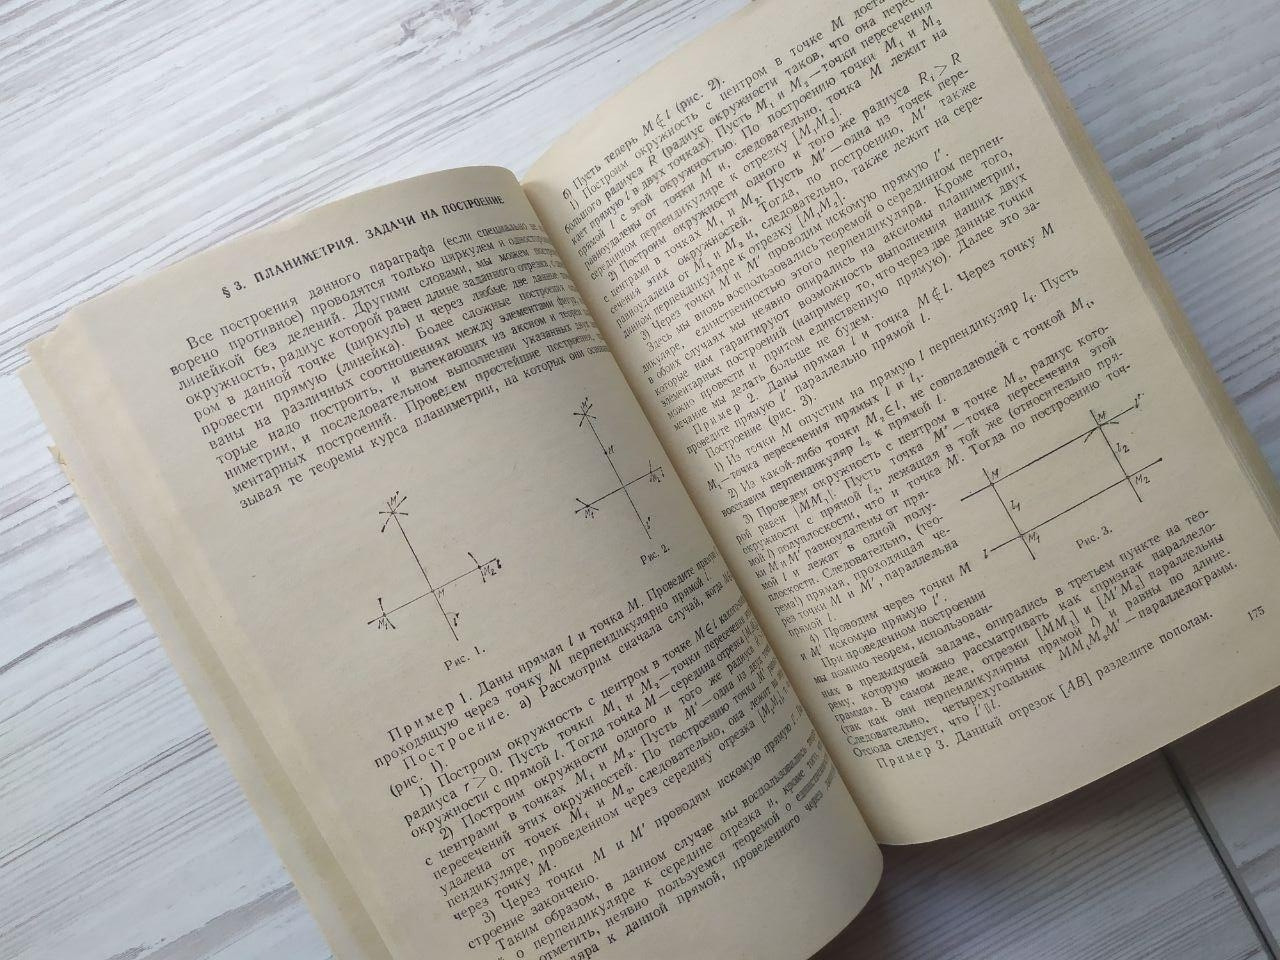 § 3. ПЛАНИМЕТРИЯ. ЗАДАЧИ НА ПОСТРОЕНИЕ
Все построения данного параграфа (если специально не
ворено противное) проводятся только циркулем и односторон
линейкой без делений. Другими словами, мы можем построить
окружность, радиус которой равен длине заданного отрезка, с
ром в данной точке (циркуль) и через любые две данные
провести прямую (линейка). Более сложные построения
ваны на различных соотношениях между элементами фигур,
торые надо построить, и вытекающих из аксиом и теорем
ниметрии, и последовательном выполнении указанных двух
ментарных построений. Проведем простейшие построения,
зывая те теоремы курса планиметрии, на которых они основа
M'
M₁
M
M₂
l
l'
Рис. 1.
M'
M
M₁
M₂
l'
Рис. 2.
Пример 1. Даны прямая l и точка M. Проведите прямую
проходящую через точку M перпендикулярно прямой l.
Построение. а) Рассмотрим сначала случай, когда M∈
(рис. 1).
1) Построим окружность с центром в точке M∈l
радиуса r>0. Пусть точки M₁ и M₂—точки пересечения
окружности с прямой l. Тогда точка M—середина отрезка
2) Построим окружности одного и того же радиуса
с центрами в точках M₁ и M₂. Пусть M'—одна из двух
пересечений этих окружностей. По построению точка M'
удалена от точек M₁ и M₂, следовательно, она лежит
пендикуляре, проведенном через середину отрезка [M₁M₂],
через точку M.
3) Через точки M и M' проводим искомую прямую l'.
строение закончено.
Таким образом, в данном случае мы воспользовались
о перпендикуляре к середине отрезка и, кроме того,
отметить, неявно пользуемся теоремой о единственности
ляра к данной прямой, проведенного через
б) Пусть теперь M∉l (рис. 2).
1) Построим окружность с центром в точке M доста
большого радиуса R (радиус окружности таков, что она пересе
кает прямую l в двух точках). Пусть M₁ и M₂—точки пересечения
прямой l с этой окружностью. По построению точки M₁ и M₂
равноудалены от точки M и, следовательно, точка M лежит на
серединном перпендикуляре к отрезку [M₁M₂].
2) Построим окружности одного и того же радиуса R₁>R
с центрами в точках M₁ и M₂. Пусть M'—одна из точек пере-
сечения этих окружностей. Тогда, по построению, M' также
равноудалена от M₁ и M₂ и, следовательно, также лежит на сере-
динном перпендикуляре к отрезку [M₁M₂].
3) Через точки M и M' проводим искомую прямую l'.
Здесь мы вновь воспользовались теоремой о серединном перпен-
дикуляре, единственностью этого перпендикуляра. Кроме того,
в обоих случаях мы неявно опирались на аксиомы планиметрии,
которые нам гарантируют возможность выполнения наших двух
элементарных построений (например то, что через две данные точки
можно провести и притом единственную прямую). Далее это за-
мечание мы делать больше не будем.
Пример 2. Даны прямая l и точка M∉l. Через точку M
проведите прямую l' параллельно прямой l.
Построение (рис. 3).
1) Из точки M опустим на прямую l перпендикуляр l₁. Пусть
M₁—точка пересечения прямых l и l₁.
2) Из какой-либо точки M₂∈l, не совпадающей с точкой M₁,
восставим перпендикуляр l₂ к прямой l.
3) Проведем окружность с центром в точке M₂, радиус кото-
рой равен |MM₁|. Пусть точка M'—точка пересечения этой
окружности с прямой l₂, лежащая в той же (относительно пря-
мой l) полуплоскости, что и точка M. Тогда по построению точ-
ки M и M' равноудалены от пря-
мой l и лежат в одной полу-
плоскости. Следовательно, (тео-
рема!) прямая, проходящая че-
рез точки M и M', параллельна
прямой l.
4) Проводим через точки M
и M' искомую прямую l'.
M
l'
l₁
l₂
M₁
M₂
l
Рис. 3.
При проведенном построении
мы помимо теорем, использован-
ных в предыдущей задаче, опирались в третьем пункте на тео-
рему, которую можно рассматривать как «признак параллело-
грамма». В самом деле, отрезки [MM₁] и [M'M₂] параллельны
(так как они перпендикулярны прямой l) и равны по длине.
Следовательно, четырехугольник MM₁M₂M'—параллелограмм.
Отсюда следует, что l'∥l.
Пример 3. Данный отрезок [AB] разделите пополам.
175